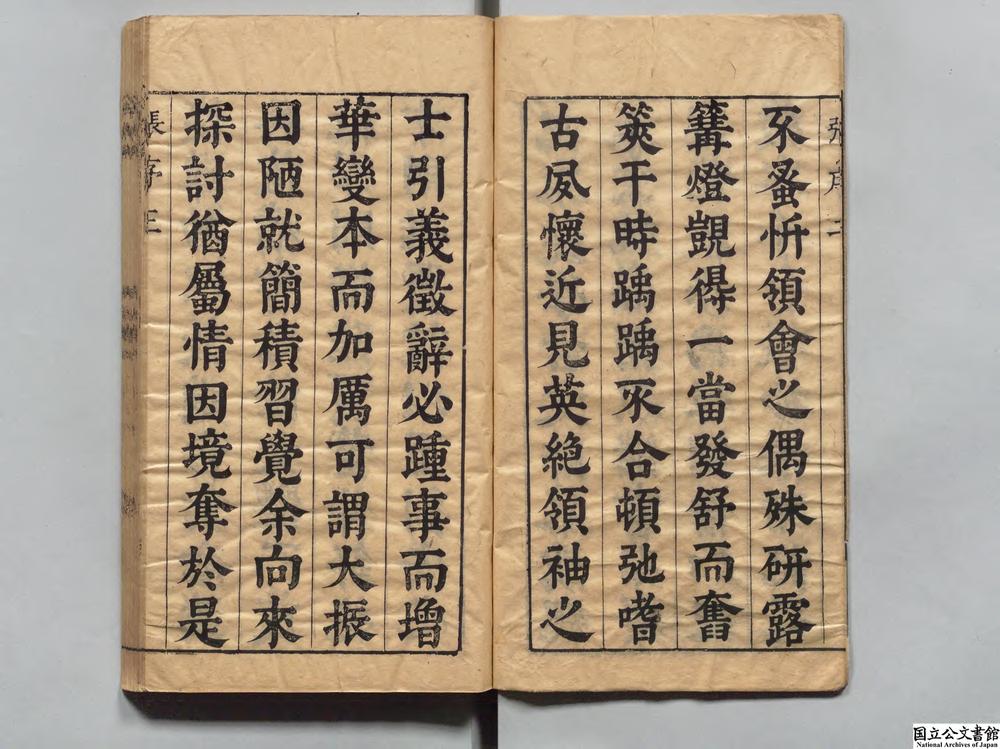 不蚤忻領會之偶殊研露
篝燈覬得一當發舒而奮
筴干時踽踽不合頓弛嗜
古夙懷近見英絶領袖之
士引義徵辭必踵事而增
華變本而加厲可謂大振
因陋就簡積習覺余向來
探討猶屬情因境奪於是
張序 三
国立公文書館
National Archives of Japan